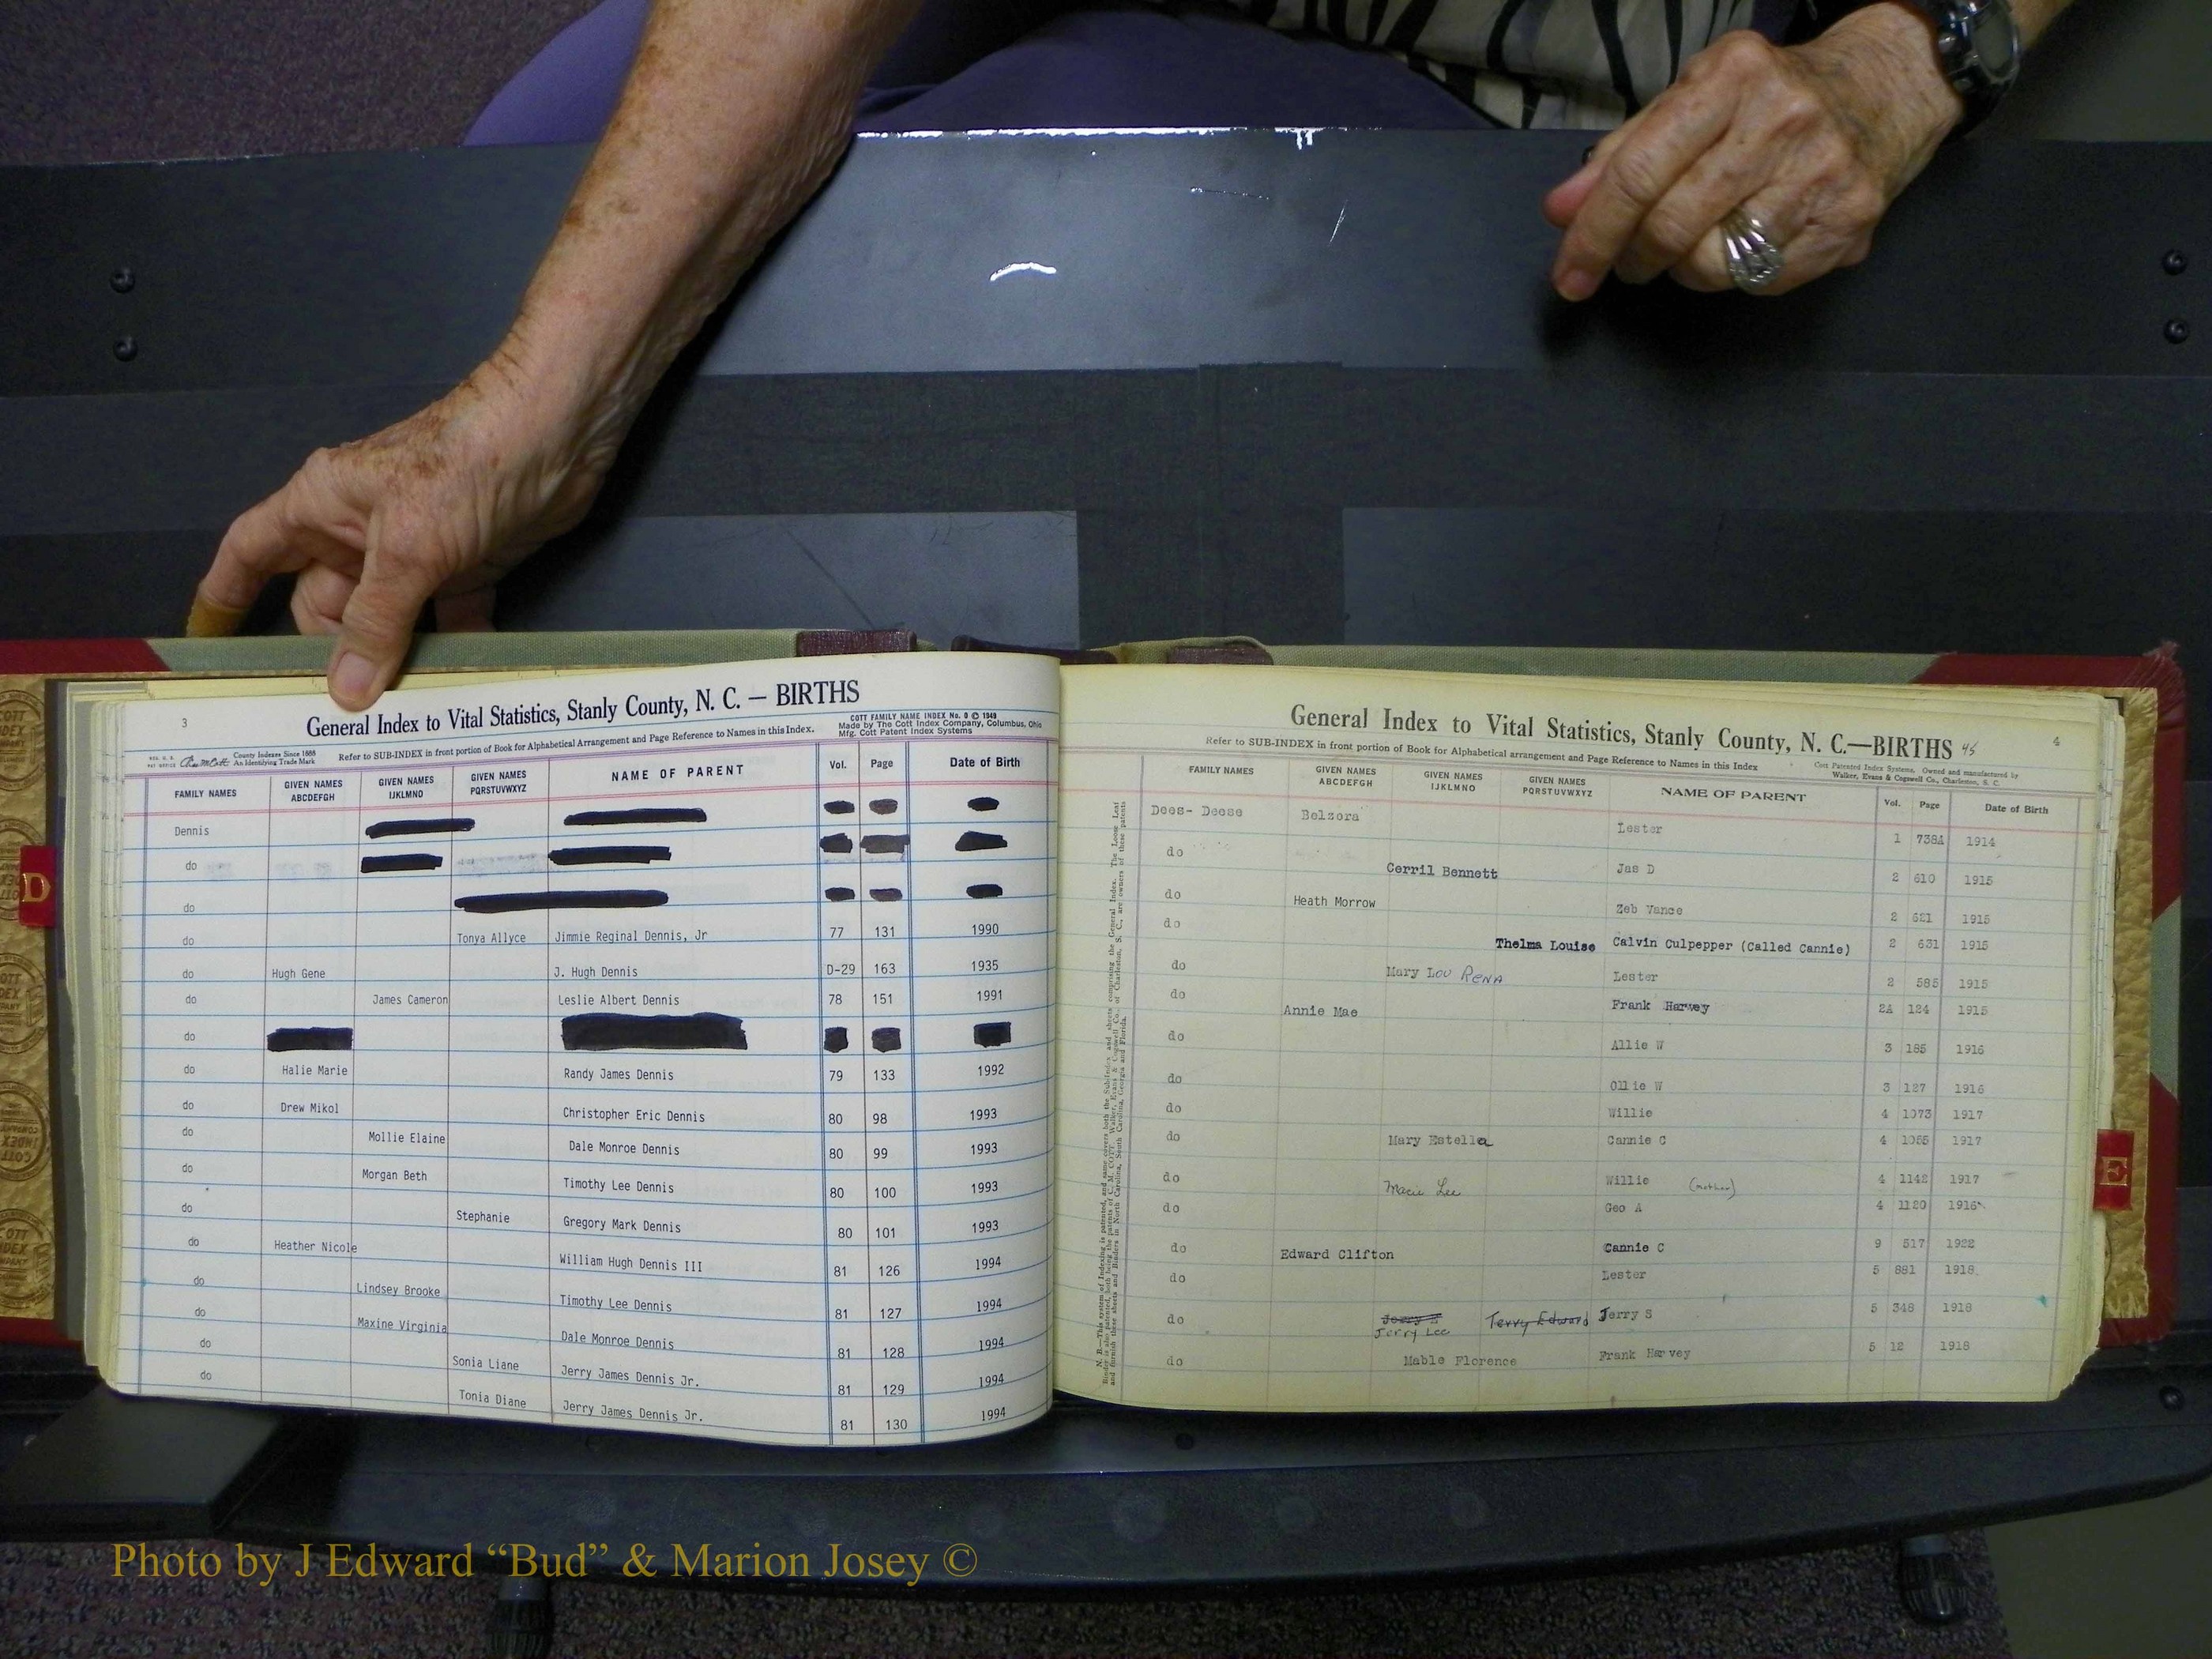 3
General Index to Vital Statistics, Stanly County, N. C. — BIRTHS
COTT FAMILY NAME INDEX No. 0 © 1949
Made by The Cott Index Company, Columbus, Ohio
Mfg. Cott Patent Index Systems
County Indexes Since 1888
An Identifying Trade Mark
Refer to SUB-INDEX in front portion of Book for Alphabetical Arrangement and Page Reference to Names in this Index.
FAMILY NAMES GIVEN NAMES ABCDEFGH GIVEN NAMES IJKLMNO GIVEN NAMES PQRSTUVWXYZ NAME OF PARENT Vol. Page Date of Birth
Dennis
do
do
do Tonya Allyce Jimmie Reginal Dennis, Jr 77 131 1990
do Hugh Gene J. Hugh Dennis D-29 163 1935
do James Cameron Leslie Albert Dennis 78 151 1991
do
do Halie Marie Randy James Dennis 79 133 1992
do Drew Mikol Christopher Eric Dennis 80 98 1993
do Mollie Elaine Dale Monroe Dennis 80 99 1993
do Morgan Beth Timothy Lee Dennis 80 100 1993
do Stephanie Gregory Mark Dennis 80 101 1993
do Heather Nicole William Hugh Dennis III 81 126 1994
do Lindsey Brooke Timothy Lee Dennis 81 127 1994
do Maxine Virginia Dale Monroe Dennis 81 128 1994
do Sonia Liane Jerry James Dennis Jr. 81 129 1994
do Tonia Diane Jerry James Dennis Jr. 81 130 1994
General Index to Vital Statistics, Stanly County, N. C.—BIRTHS 45
4
Refer to SUB-INDEX in front portion of Book for Alphabetical arrangement and Page Reference to Names in this Index
Cott Patented Index Systems, Owned and manufactured by
Walker, Evans & Cogswell Co., Charleston, S. C.
FAMILY NAMES GIVEN NAMES ABCDEFGH GIVEN NAMES IJKLMNO GIVEN NAMES PQRSTUVWXYZ NAME OF PARENT Vol. Page Date of Birth
Dees- Deese Belzora Lester 1 738A 1914
do Cerril Bennett Jas D 2 610 1915
do Heath Morrow Zeb Vance 2 621 1915
do Thelma Louise Calvin Culpepper (Called Cannie) 2 631 1915
do Mary Lou Rena Lester 2 585 1915
do Annie Mae Frank Harvey 2A 124 1915
do Allie W 3 185 1916
do Ollie W 3 127 1916
do Willie 4 1073 1917
do Mary Estella Cannie C 4 1055 1917
do Macie Lee Willie (mother) 4 1142 1917
do Geo A 4 1120 1916
do Edward Clifton Cannie C 9 517 1922
do Lester 5 881 1918
do Jerry Lee Terry Edward Jerry S 5 348 1918
do Mable Florence Frank Harvey 5 12 1918
D
E
Photo by J Edward “Bud” & Marion Josey ©